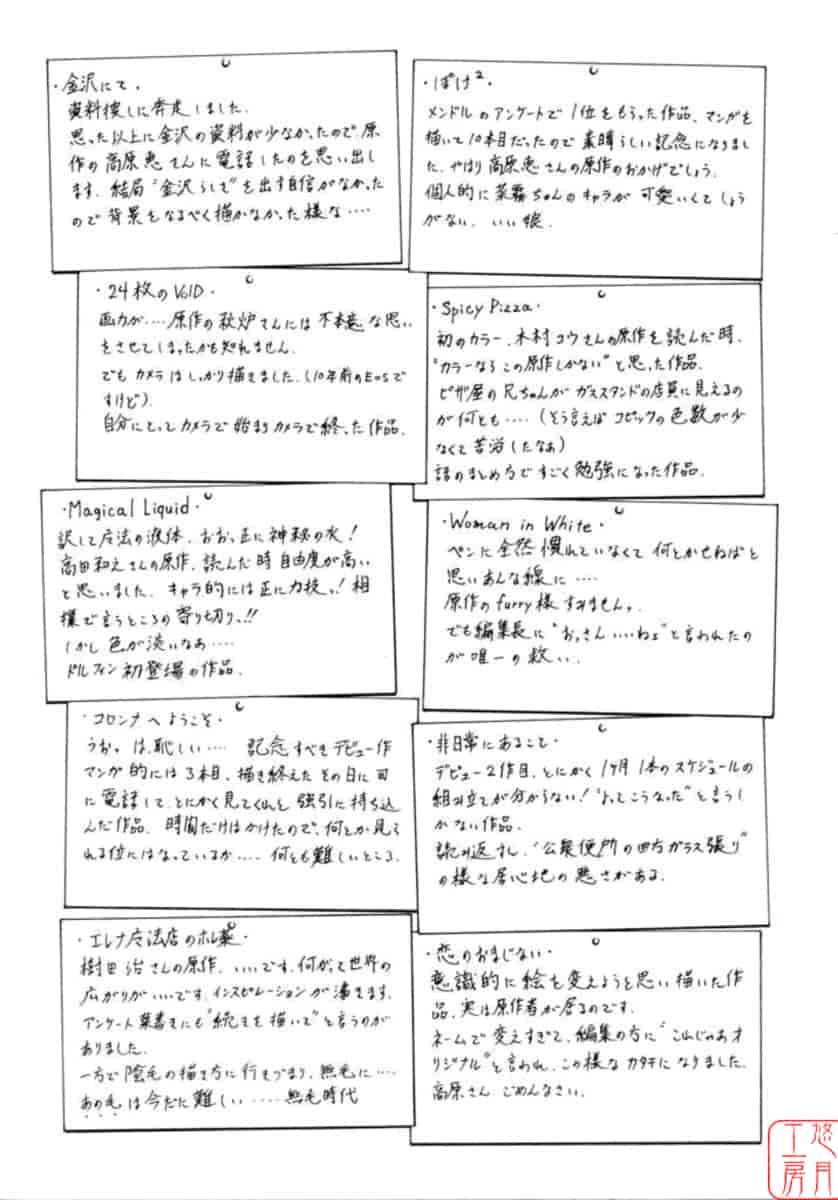 ・金沢にて・
資料捜しに奔走しました。
思った以上に金沢の資料が少なかったので、原
作の高原恵さんに電話したのを思い出し
ます。結局"金沢らしさ"を出す自信がなかった
ので背景をなるべく描かなかった様な‥‥
・ぱけ²・
メンドルのアンケートで1位をもらった作品。マンガを
描いて10本目だったので素晴らしい記念になりまし
た。やはり高原恵さんの原作のおかげでしょう。
個人的に菜霧ちゃんのキャラが可愛いくてしょう
がない。いい娘。
・24枚のVOID・
画力が‥‥原作の秋炉さんには不本意な思い
をさせてしまったかも知れません。
でもカメラはしっかり描きました。(10年前のEOSで
すけど)。
自分にとってカメラで始まりカメラで終った作品。
・Spicy Pizza・
初のカラー。木村コウさんの原作を読んだ時、
"カラーならこの原作しかない"と思った作品。
ピザ屋の兄ちゃんがガススタンドの店員に見えるの
が何とも‥‥(そう言えばコピックの色数が少
なくて苦労したなあ)
話のまとめ方ですごく勉強になった作品。
・Magical Liquid・
訳して魔法の液体。おお、正に神秘の水!
高田和えさんの原作、読んだ時自由度が高い
と思いました。キャラ的には正に力技っ!相
撲で言うところの寄り切りっ!!
しかし色が淡いなあ‥‥
ドルフィン初登場の作品。
・Woman in White・
ペンに全然慣れていなくて何とかせねばと
思いあんな線に‥‥
原作のfurry様すみません。
でも編集長に"おっさんいいねぇ"と言われたの
が唯一の救い。
・コロンナへようこそ・
うおっは、恥しい‥‥ 記念すべきデビュー作
マンガ的には3本目、描き終えたその日に司
に電話して、とにかく見てくれと強引に持ち込
んだ作品。時間だけはかけたので、何とか見ら
れる位にはなっているか‥‥何とも難しいところ。
・非日常にあること・
デビュー2作目、とにかく1ヶ月1本のスケジュールの
組み立てが分からない!"よってこうなった"と言うし
かない作品。
読み返すし、"公衆便所の四方ガラス張り"
の様な居心地の悪さがある。
・エレナ魔法店のホレ薬・
樹田治さんの原作、いいです。何がって世界の
広がりがいいです。インスピレーションが湧きます。
アンケート葉書きにも"続きを描いて"と言うのが
ありました。
一方で陰毛の描き方に行きづまり、無毛に‥‥
あの毛は今だに難しい‥‥‥無毛時代
・恋のおまじない・
意識的に絵を変えようと思い描いた作
品。実は原作者が居るのです。
ネームで変えすぎて、編集の方に"これじゃあオ
リジナル"と言われ、この様なカタチになりました。
高原さん、ごめんなさい。
悠月
工房